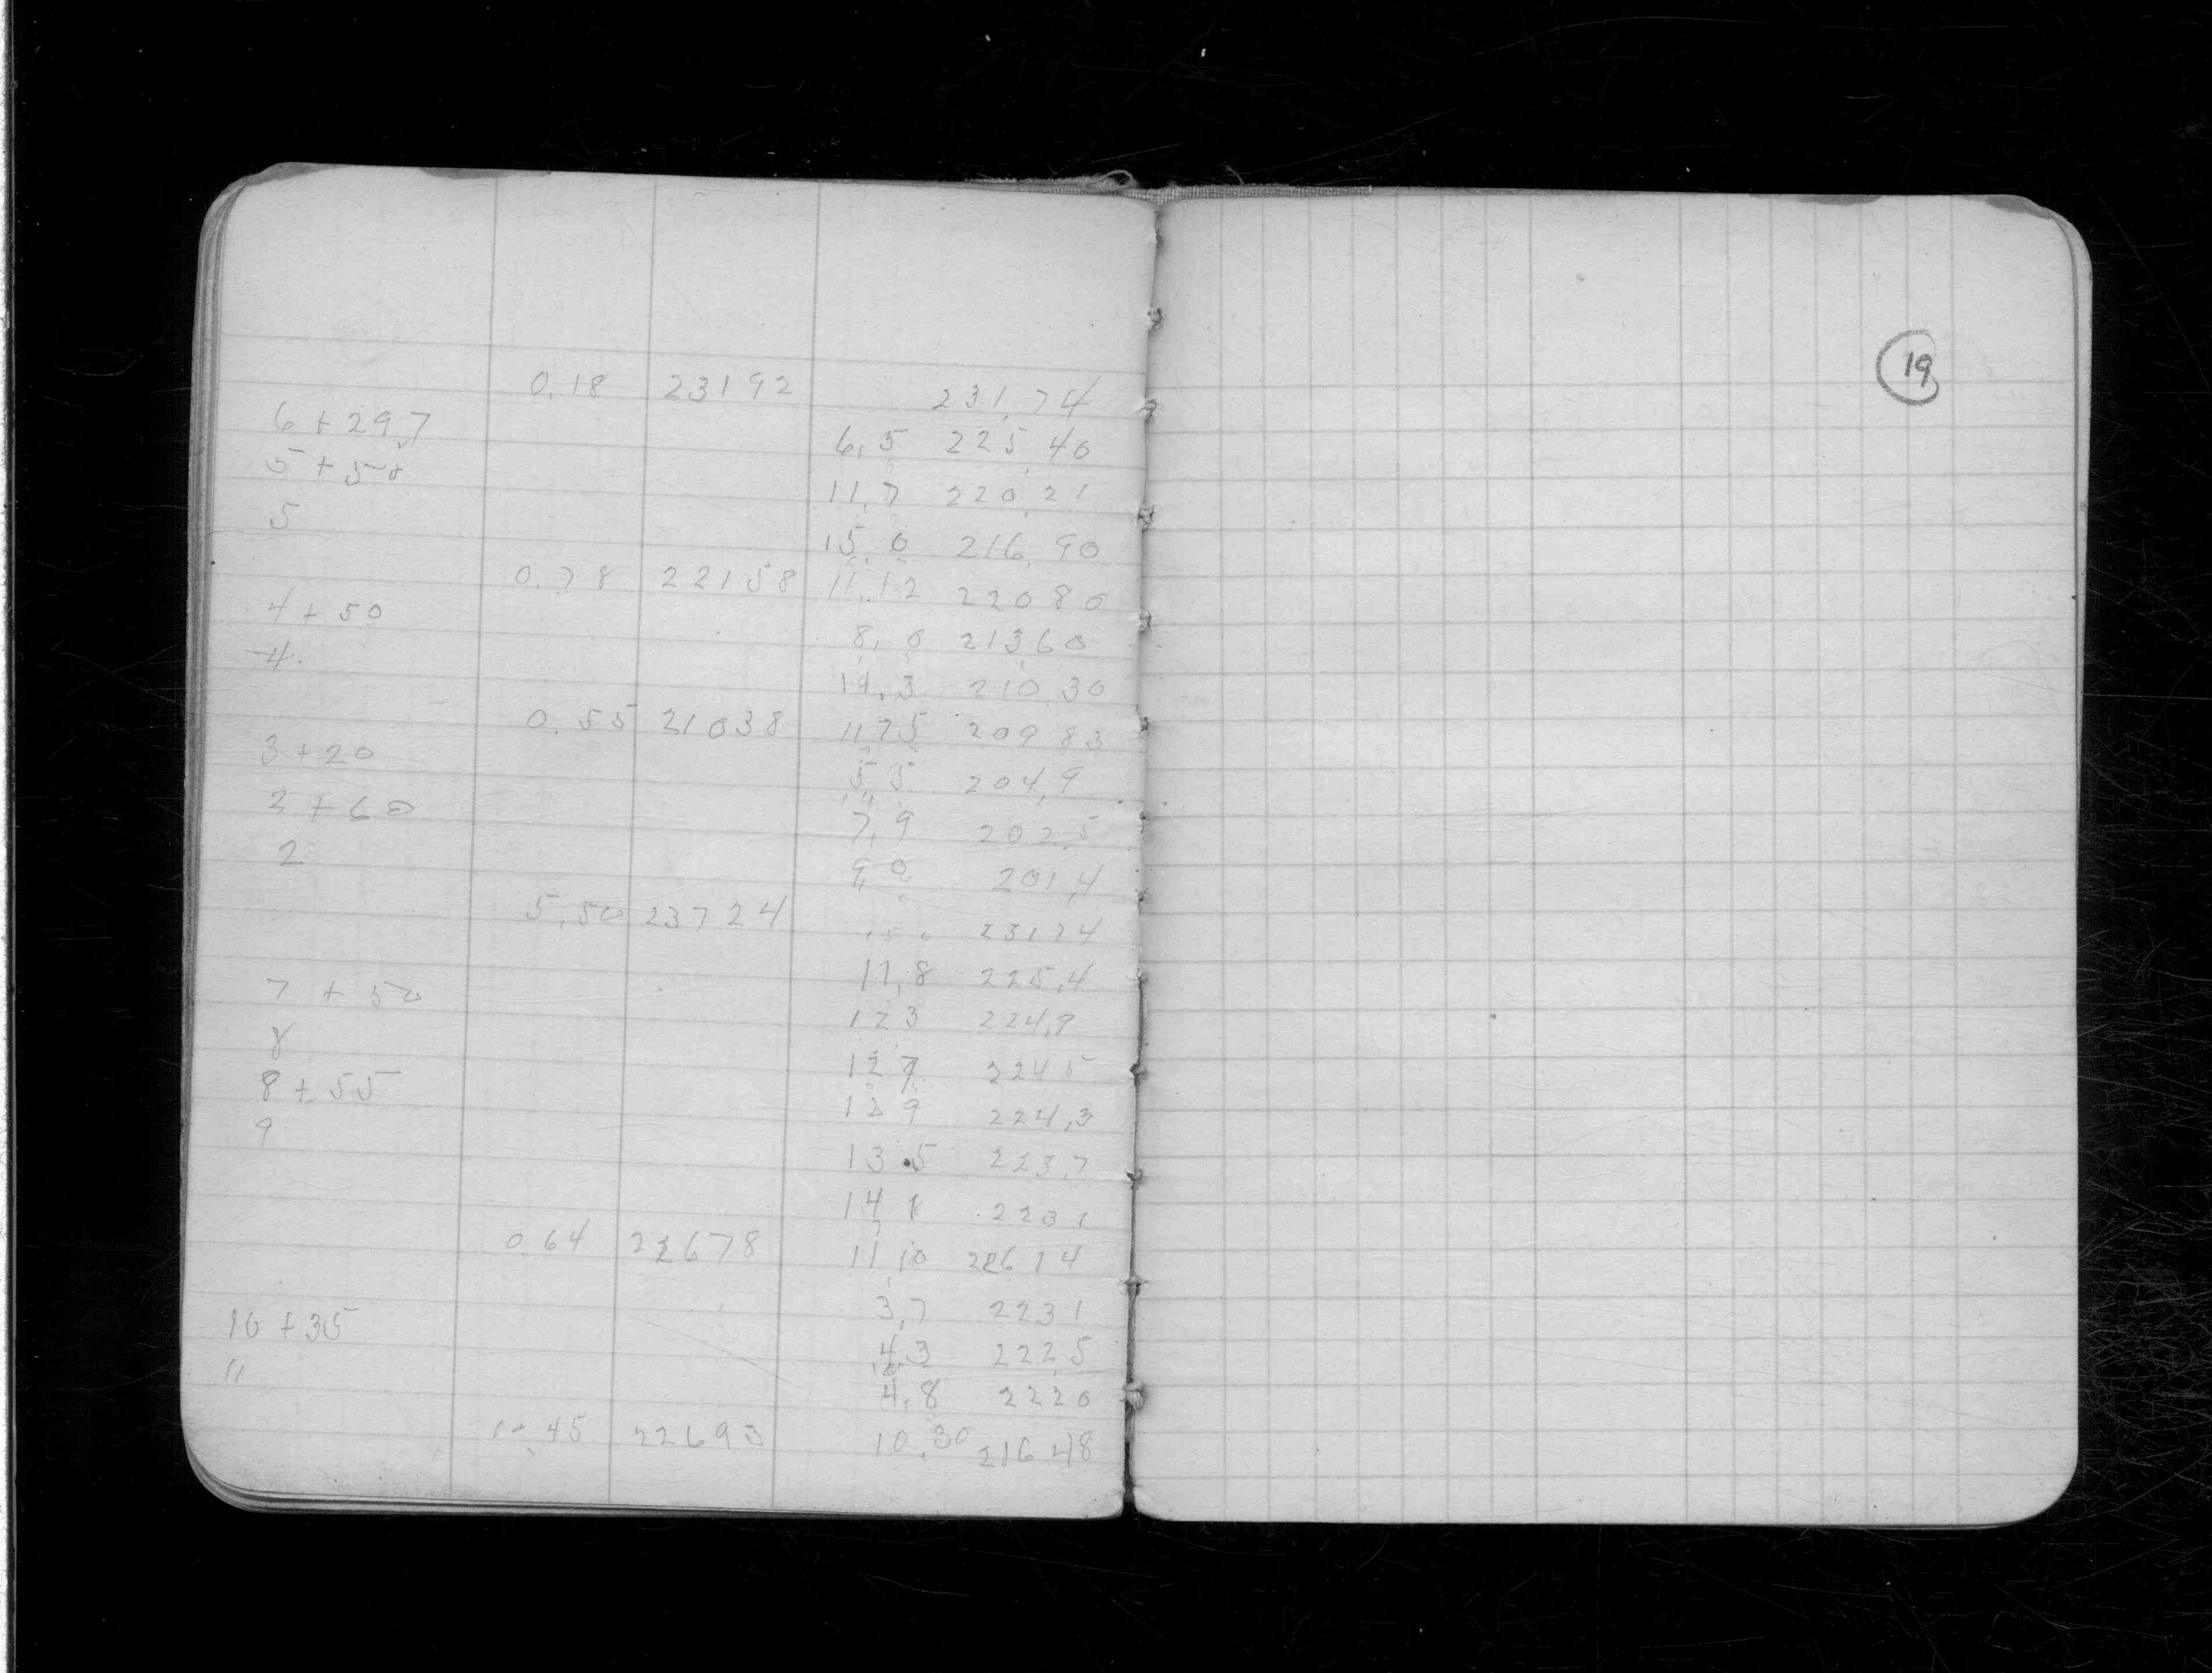 231,74
0.18 23192
6 + 29,7 6,5 225,40
5 + 50 11,7 220,21
5 15,0 216,90
0.78 22158 11,12 22080
4 + 50 8,0 21360
4 14,3 210,30
0.55 21038 11 75 209 83
3 + 20 5 5 204,9
2 + 60 7,9 202,5
2 9,0 201,4
5,50 23724 231 74
7 + 50 11,8 225,4
8 12 3 224,9
8 + 55 12 7 224 5
9 12 9 224,3
13.5 223,7
14 1 223 1
0 64 22678 11,10 226 14
3,7 223 1
10 + 35 4,3 222 5
11 4,8 222 0
45 22693 10,30 216 48
19